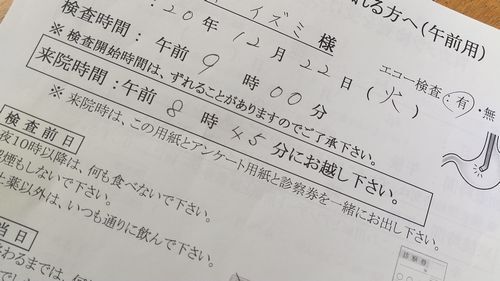 れる方へ(午前用)
イズミ 様
:20 年 12 月 22 日 (火)
検査時間:午前 9 時 00 分
エコー検査:有・無
※検査開始時間は、ずれることがありますのでご了承下さい。
来院時間:午前 8 時 45 分にお越し下さい。
※ 来院時は、この用紙とアンケート用紙と診察券を一緒にお出し下さい。
検査前日
夜10時以降は、何も食べないで下さい。
煙もしないで下さい。
薬以外は、いつも通りに飲んで下さい。
当日
わるまでは、何
診察券